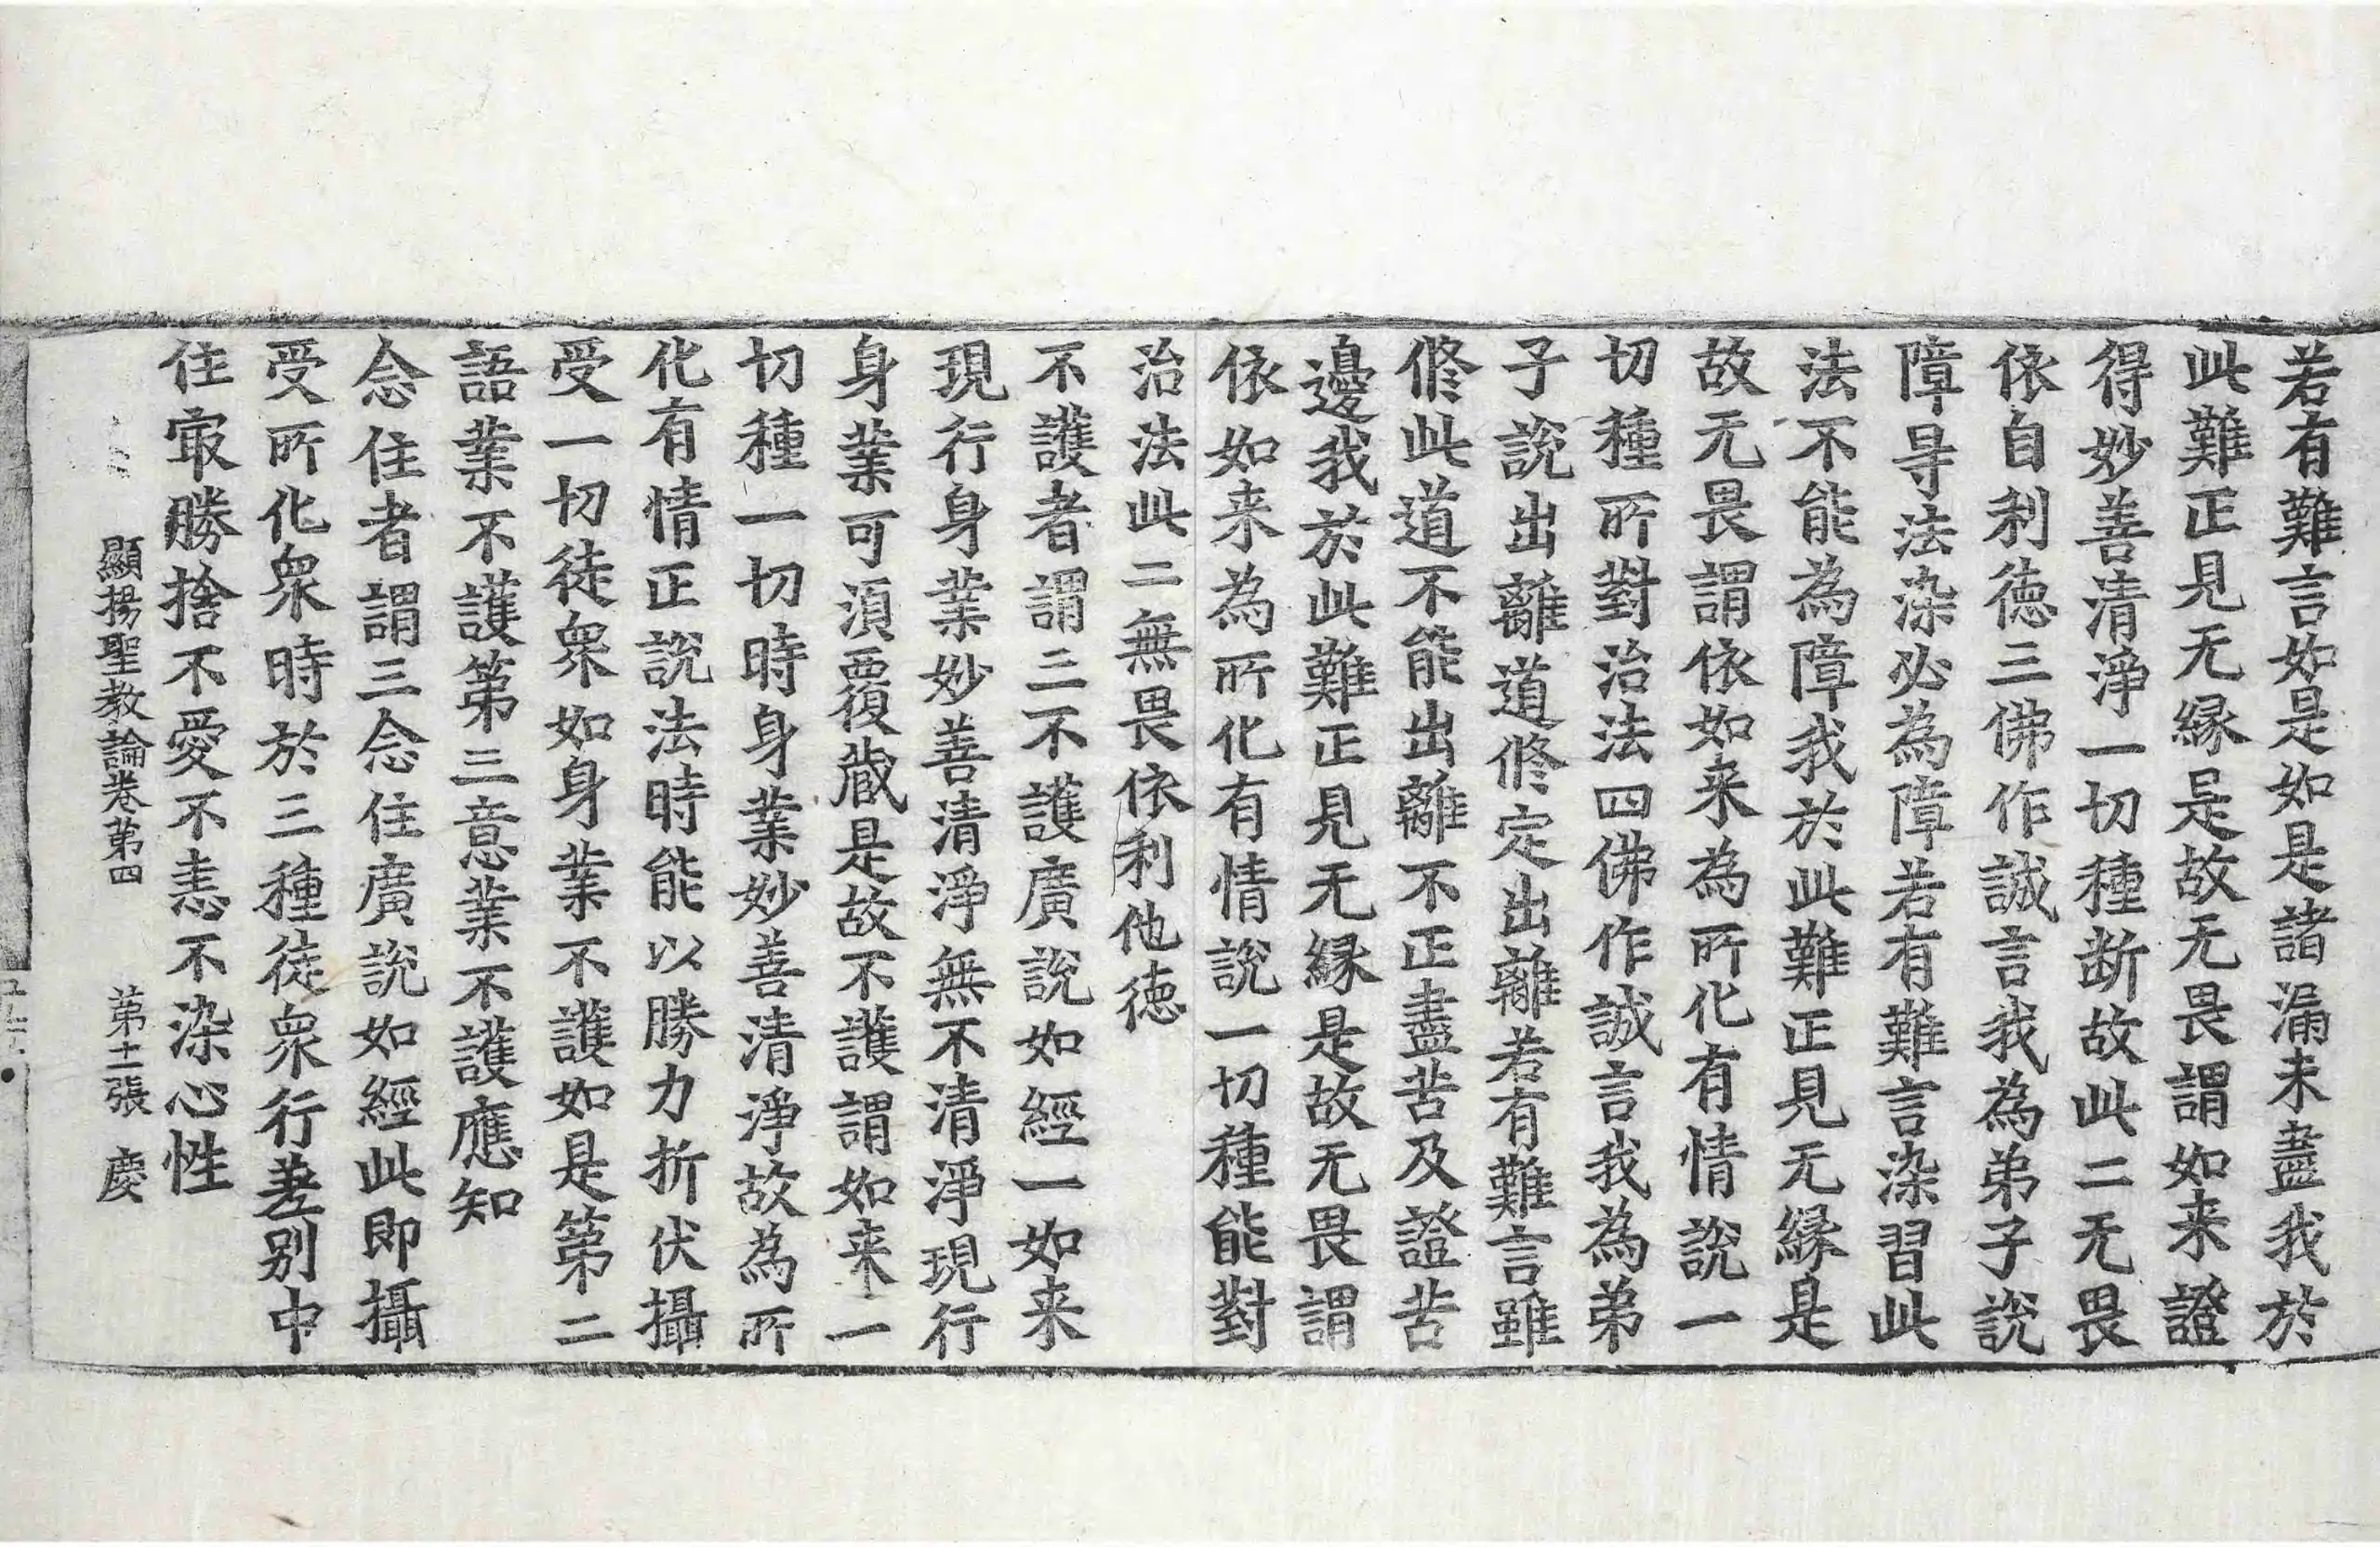 若有難言如是如是諸漏未盡我於
此難正見无縁是故无畏謂如来證
得妙善清淨一切種断故此二无畏
依自利徳三佛作誠言我為弟子說
障㝵法染必為障若有難言染習此
法不能為障我於此難正見无縁是
故无畏謂依如来為所化有情說一
切種所對治法四佛作誠言我為弟
子說出離道修定出離若有難言雖
修此道不能出離不正盡苦及證苦
邊我於此難正見无縁是故无畏謂
依如来為所化有情說一切種能對
治法此二無畏依利他徳
不護者謂三不護廣說如經一如来
現行身業妙善清淨無不清淨現行
身業可湏覆蔵是故不護謂如来一
切種一切時身業妙善清淨故為所
化有情正說法時能以勝力折伏攝
受一切徒衆如身業不護如是第二
語業不護第三意業不護應知
念住者謂三念住廣說如經此即攝
受所化衆時於三種徒衆行差别中
住㝡勝捨不愛不恚不染心性
顯揚聖教論卷第四 第十二張 慶